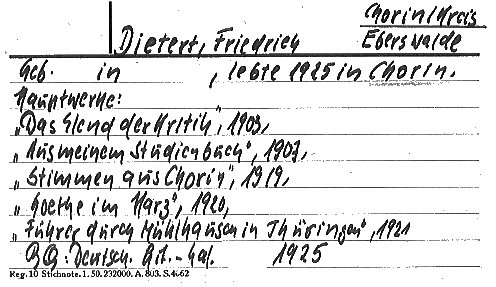 Chorin/Kreis
Eberswalde
Dietert, Friedrich
Geb. in , lebte 1925 in Chorin.
Hauptwerke:
„Das Elend der Kritik", 1903,
„Aus meinem Studienbuch", 1907,
„Stimmen aus Chorin", 1919,
„Goethe im Harz", 1920,
„Führer durch Mühlhausen in Thüringen", 1921
BQ: Deutsch. Lit.-Kal. 1925
Reg. 10 Stichnote. 1. 50. 232000. A. 803. S. 4662